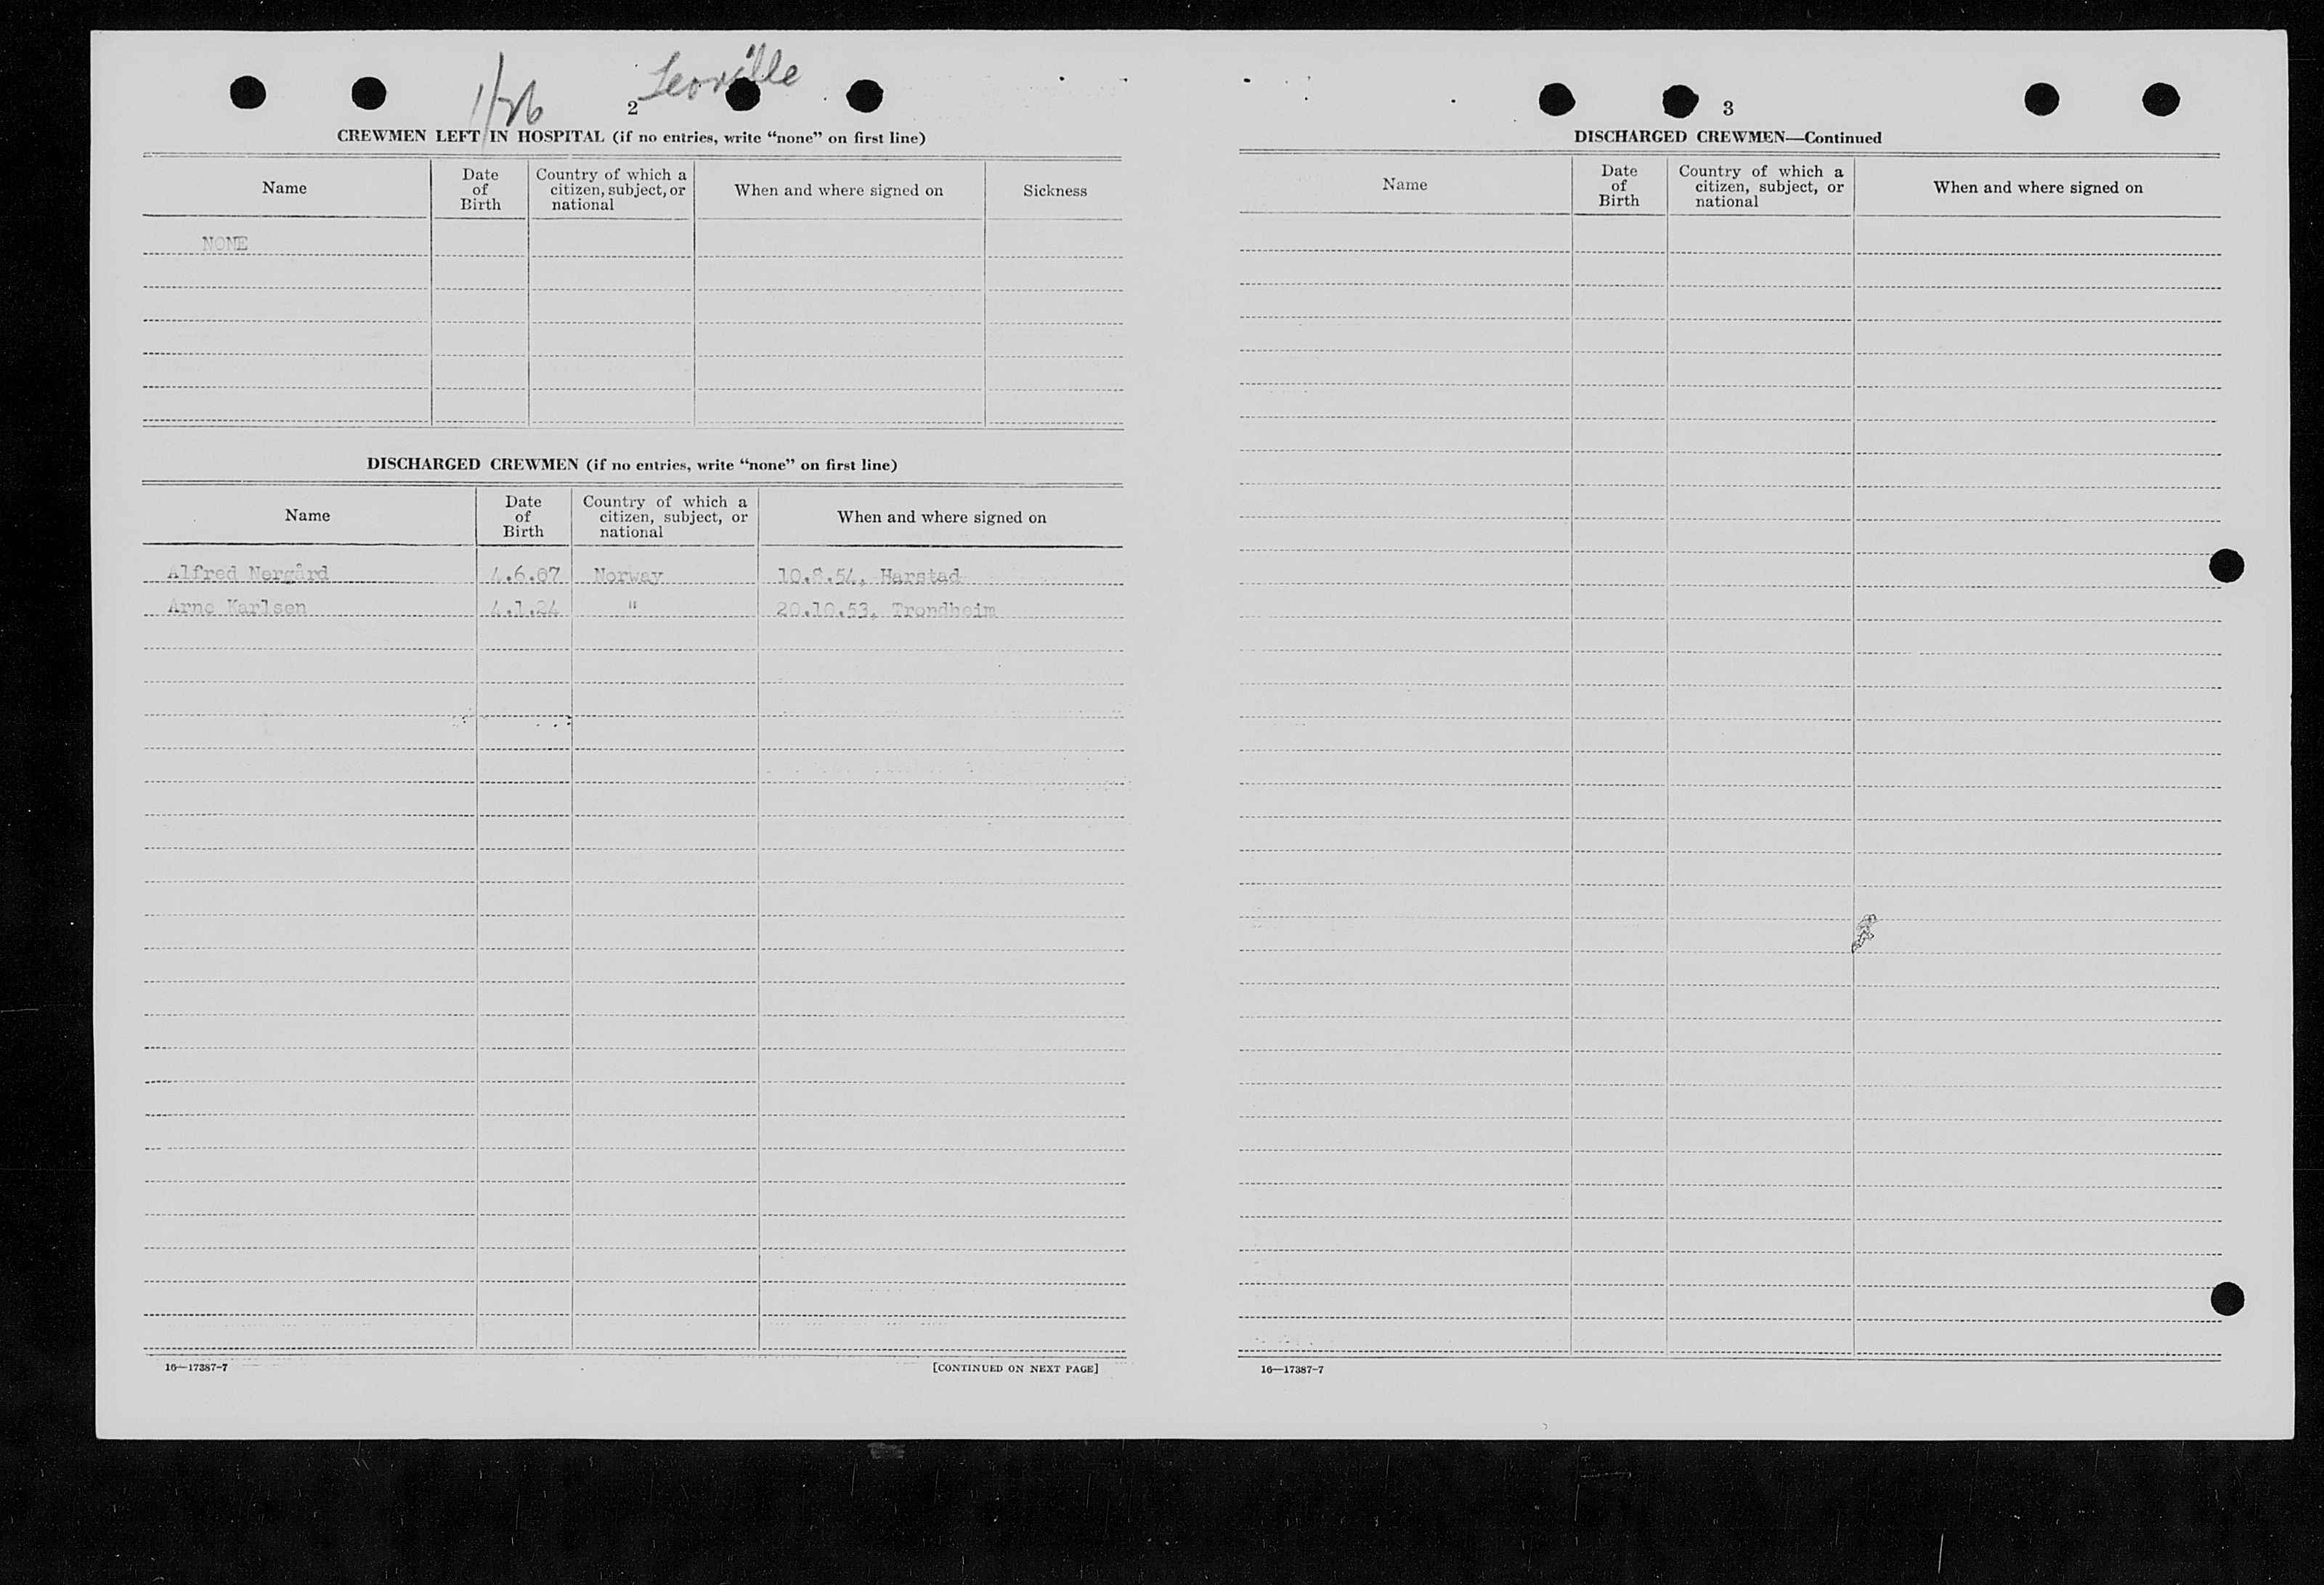 1/26 Leoville
2
CREWMEN LEFT IN HOSPITAL (if no entries, write “none” on first line)
Name Date of Birth Country of which a citizen, subject, or national When and where signed on Sickness
NONE
DISCHARGED CREWMEN (if no entries, write “none” on first line)
Name Date of Birth Country of which a citizen, subject, or national When and where signed on
Alfred Nergård 4.6.07 Norway 10.8.54, Harstad
Arne Karlsen 4.1.24 " 20.10.53, Trondheim
16—17387-7 [CONTINUED ON NEXT PAGE]
3
DISCHARGED CREWMEN—Continued
Name Date of Birth Country of which a citizen, subject, or national When and where signed on
16—17387-7